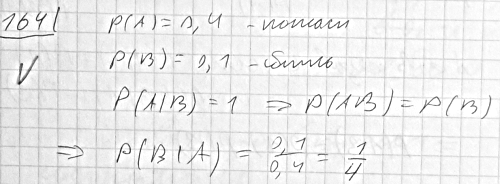 1641 P(A) = 0,4 - попали
V P(B) = 0,1 - сбили
P(A|B) = 1 ⇒ P(AB) = P(B)
⇒ P(B|A) = 0,1/0,4 = 1/4